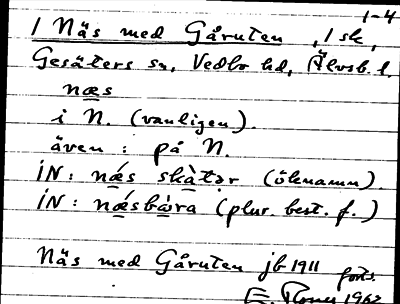 1-4
1 Näs med Gåruten, 1 sk,
Gesäters sn, Vedbo hd, Älvsb. l.
næs
i N. (vanligen).
även: på N.
IN: næ´s skà̱tər (öknamn).
IN: næ´sbàra (plur. best. f.)
Näs med Gåruten jb 1911
forts.
1962